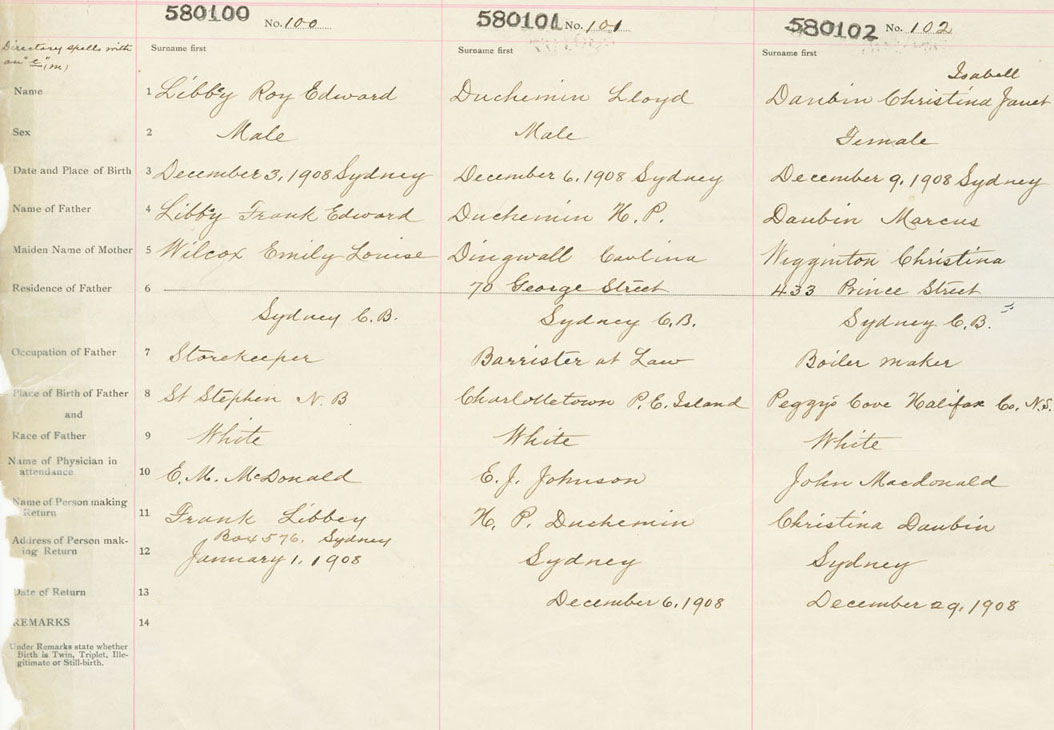 580100 No. 100 580101 No. 101 580102 No. 102
Directory spells with
an "e" (m)
Surname first Surname first Surname first
Isabell
Name 1 Libby Roy Edward Duchemin Lloyd Daubin Christina Janet
Sex 2 Male Male Female
Date and Place of Birth 3 December 3, 1908 Sydney December 6, 1908 Sydney December 9, 1908 Sydney
Name of Father 4 Libby Frank Edward Duchemin H. P. Daubin Marcus
Maiden Name of Mother 5 Wilcox Emily Louise Dingwall Caulina Wigginton Christina
Residence of Father 6 70 George Street 433 Prince Street
Sydney C.B. Sydney C.B. Sydney C.B.
Occupation of Father 7 Storekeeper Barrister at Law Boiler maker
Place of Birth of Father 8 St Stephen N.B Charlottetown P.E. Island Peggy's Cove Halifax Co. N.S.
and
Race of Father 9 White White White
Name of Physician in
attendance 10 E. M. McDonald E. J. Johnson John Macdonald
Name of Person making
Return 11 Frank Libbey H. P. Duchemin Christina Daubin
Address of Person mak-
ing Return 12 Box 576, Sydney Sydney Sydney
January 1, 1908
Date of Return 13 December 6, 1908 December 29, 1908
REMARKS 14
Under Remarks state whether
Birth is Twin, Triplet, Ille-
gitimate or Still-birth.